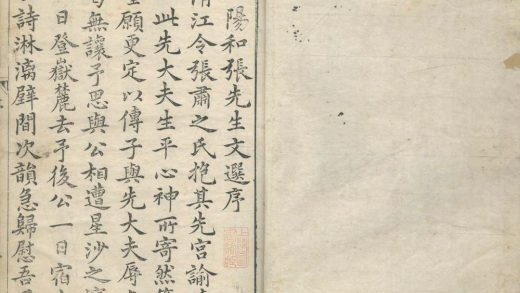 陽和張先生文選序
江令張肅之氏抱其先宮諭
此先大夫生平心神所寄然
願更定以傳子與先大夫辱
無讓予思與公相遭星沙之
日登嶽麓去予後公一日宿
詩淋漓壁間次韻急歸慰吾